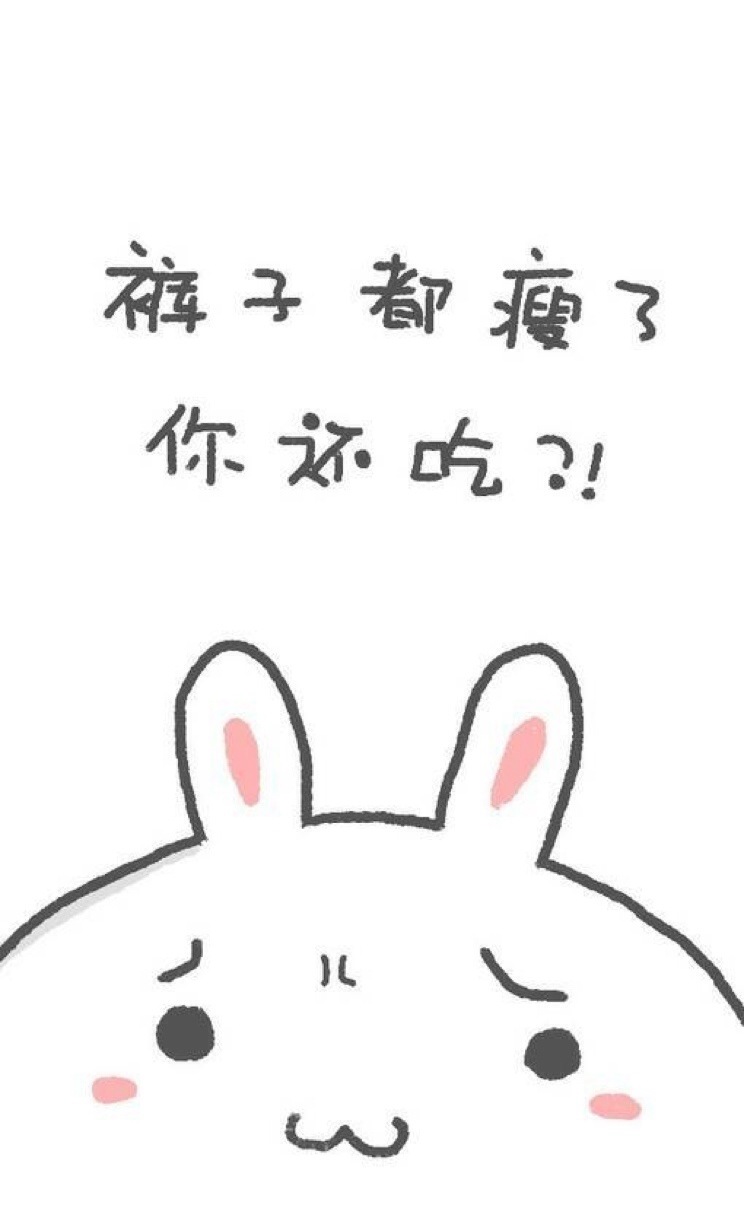 裤子都瘦了
你还吃?!